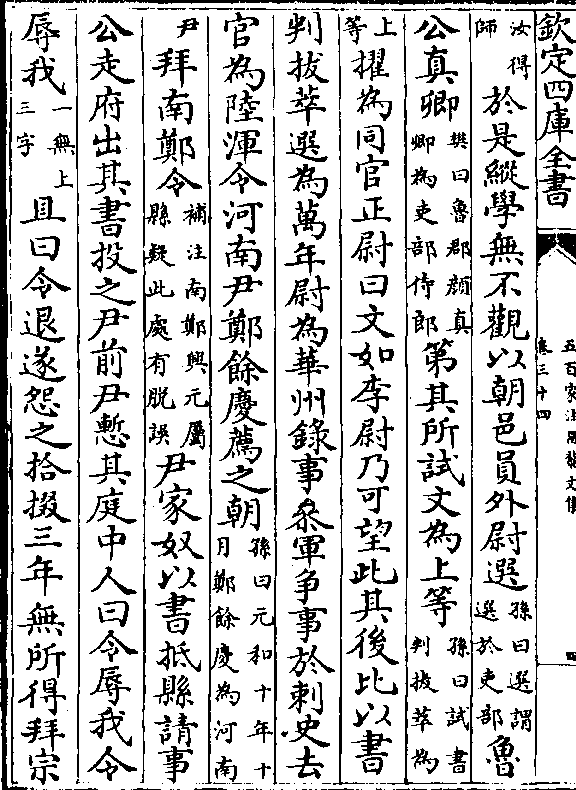 欽定四庫全書
五百家注昌黎文集
卷三十四
四
汝得師於是縱學無不觀以朝邑員外尉選孫曰選謂選於吏部魯
公真卿樊曰魯郡顔真卿為吏部侍郎第其所試文為上等孫曰試書判拔萃為
上等擢為同官正尉曰文如李尉乃可望此其後比以書
判拔萃選為萬年尉為華州錄事叅軍爭事於刺史去
官為陸渾令河南尹鄭餘慶薦之朝孫曰元和十年十月鄭餘慶為河南
尹拜南鄭令補注南鄭興元屬縣疑此處有脫誤尹家奴以書抵縣請事
公走府出其書投之尹前尹慙其庭中人曰令辱我令
辱我一無上三字且曰令退遂怨之拾掇三年無所得拜宗